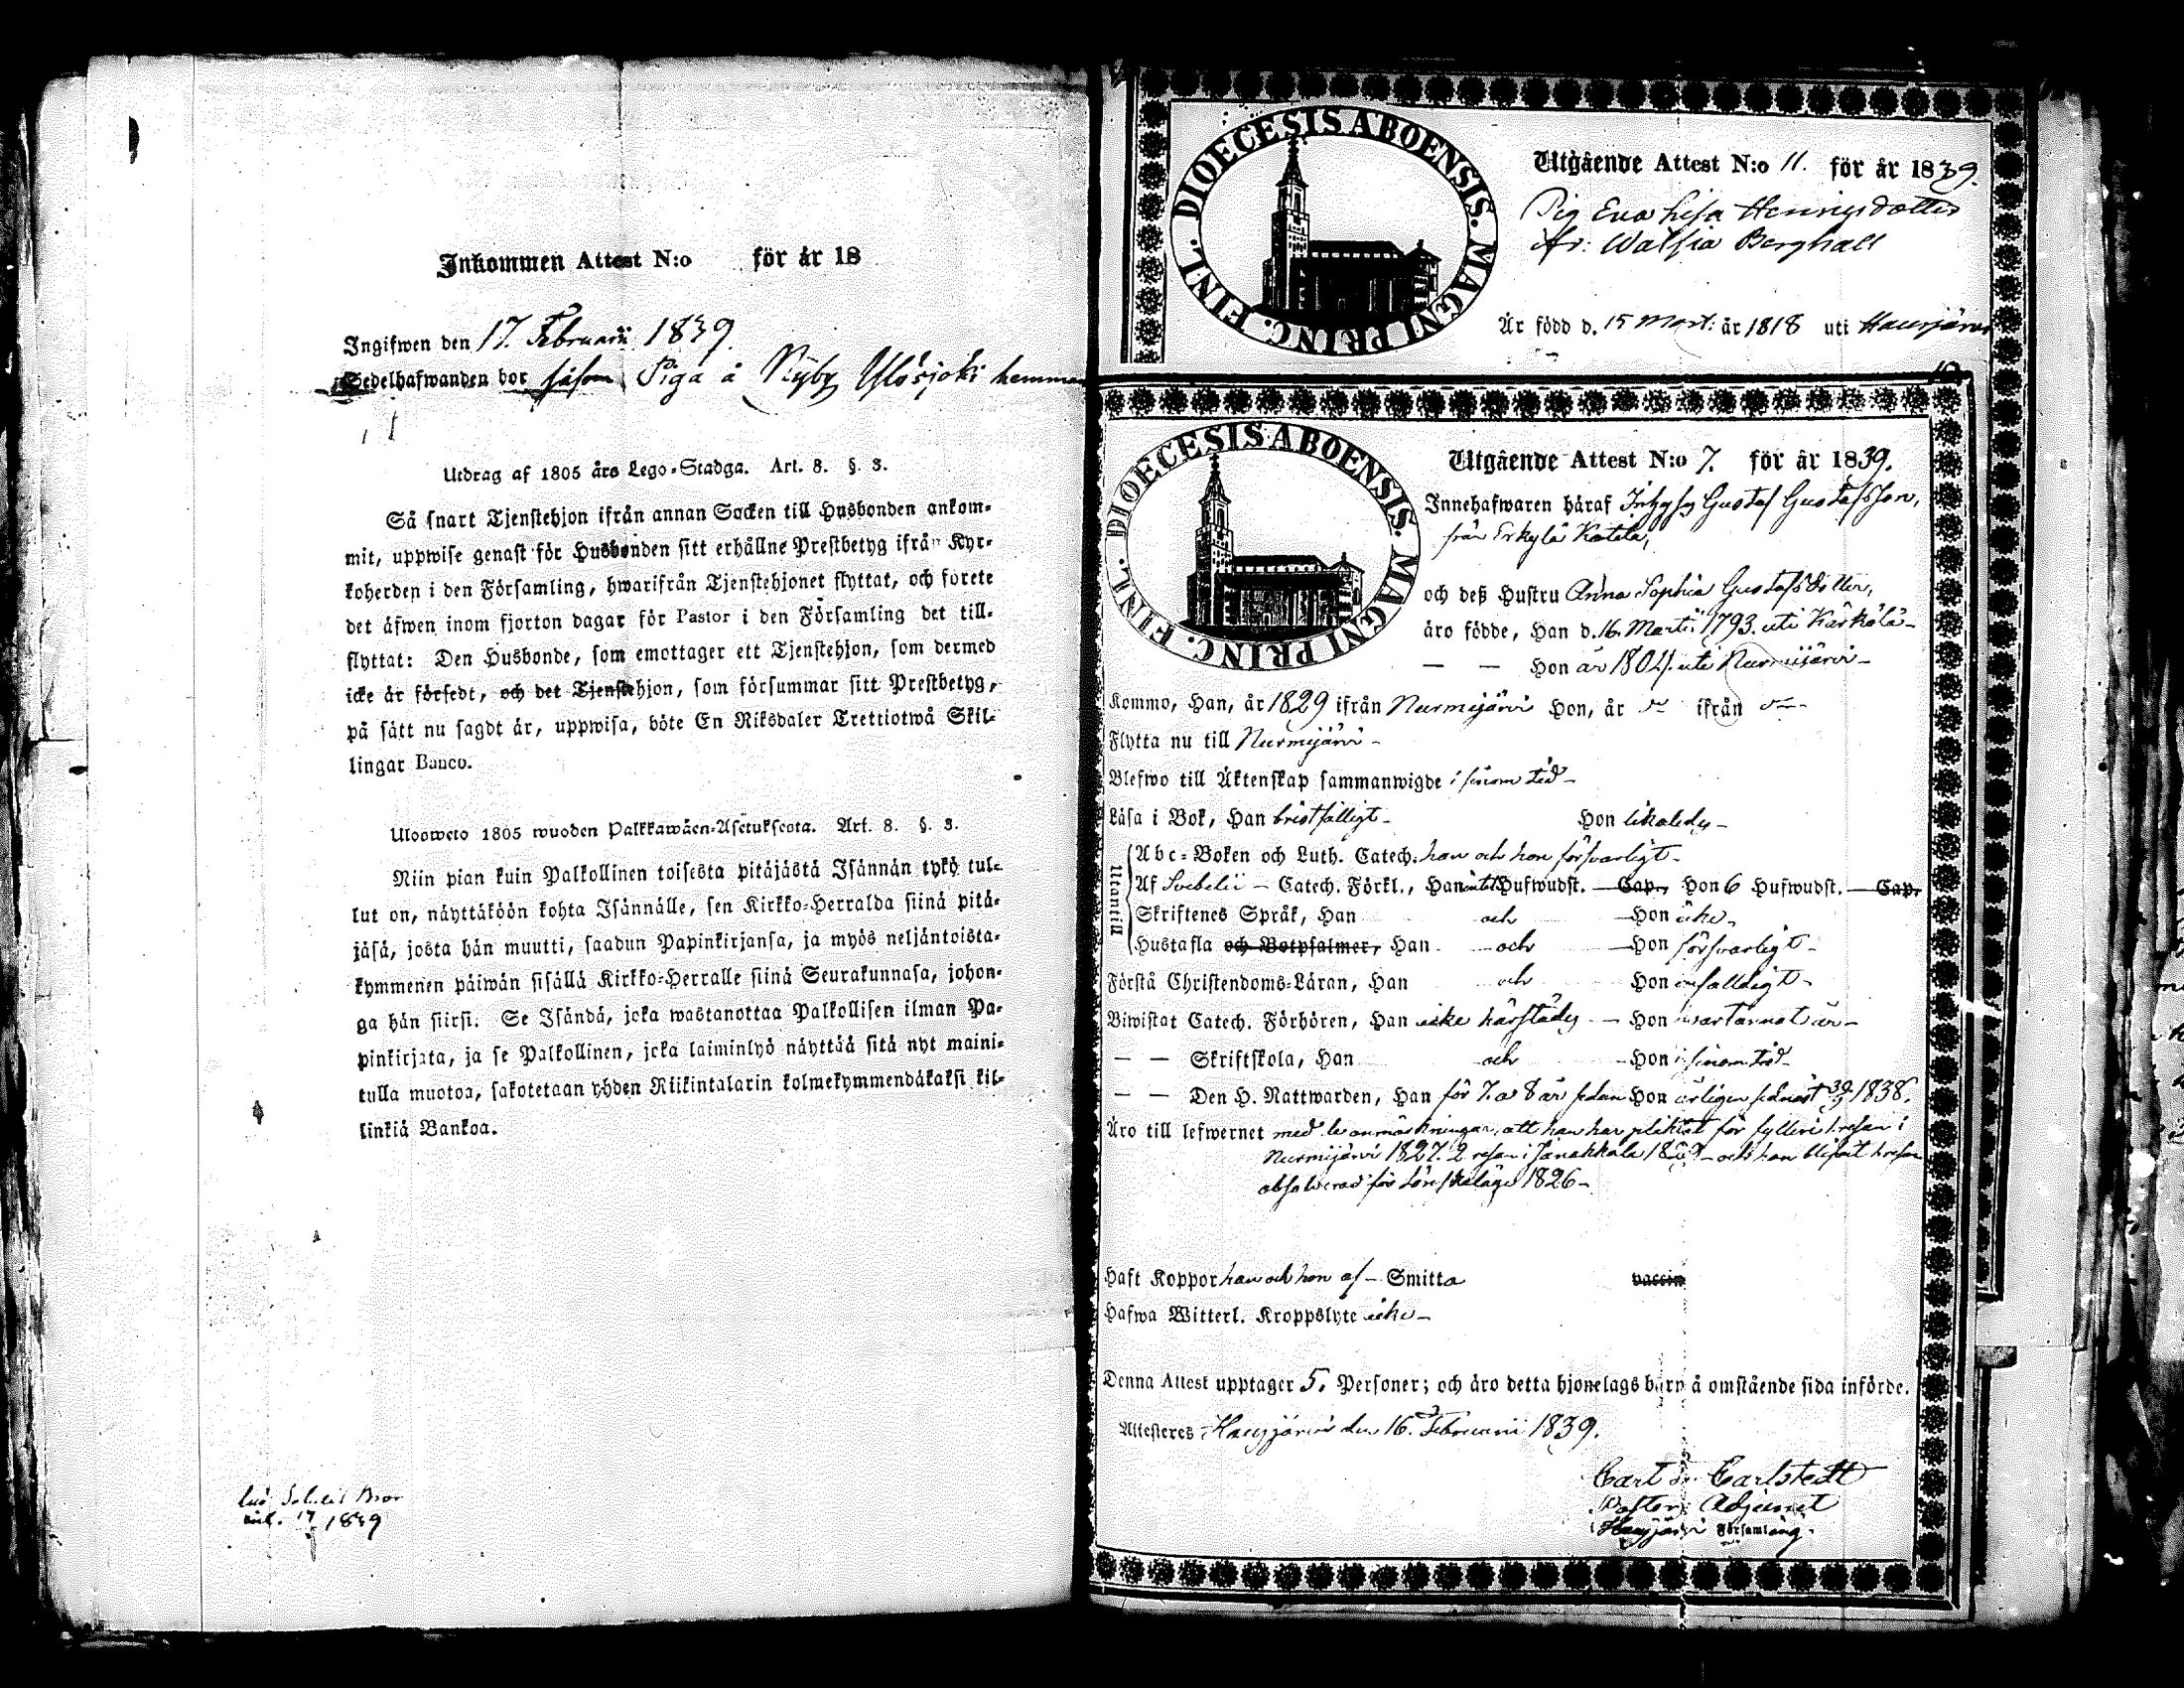 Inkommen Attest N:o för år 18
Ingifwen den 17. Februarii 1839.
Sedelhafwanden bor såsom Piga å Nyby Ylösjoki hemman
Utdrag af 1805 års Lego-Stadga. Art. 8. §. 3.
Så snart Tjenstehjon ifrån annan Socken till Husbonden ankom-
mit, uppwise genast för Husbonden sitt erhållne Prestbetyg ifrån Kyr-
koherden i den Församling, hwarifrån Tjenstehjonet flyttat, och forete
det äfwen inom fjorton dagar för Pastor i den Församling det till-
flyttat: Den Husbonde, som emottager ett Tjenstehjon, som dermed
icke är försedt, och det Tjenstehjon, som försummar sitt Prestbetyg,
på sätt nu sagdt är, uppwisa, böte En Riksdaler Trettiotwå Skil-
lingar Banco.
Ulosweto 1805 wuoden Palkkawäen-Asetuksesta. Art. 8. §. 3.
Niin pian kuin Palkollinen toisesta pitäjästä Isännän tykö tul-
lut on, näyttäköön kohta Isännälle, sen Kirkko-Herralda siinä pitä-
jäsä, josta hän muutti, saadun Papinkirjansa, ja myös neljäntoista-
kymmenen päiwän sisällä Kirkko-Herralle siinä Seurakunnasa, johon-
ga hän siirsi. Se Isändä, joka wastanottaa Palkollisen ilman Pa-
pinkirjata, ja se Palkollinen, joka laiminlyö näyttää sitä nyt maini-
tulla muotoa, sakotetaan yhden Riikintalarin kolmekymmendäkaksi kil-
linkiä Bankoa.
17 1839
DIOECESIS ABOENSIS. MAGNI PRINC. FINL.
Utgående Attest N:o 11. för år 1839.
Pig Eva Lisa Henrigsdotter
fr: Walsia Berghäll
Är född d. 15 Mart: år 1818 uti Hausjärvi
DIOECESIS ABOENSIS. MAGNI PRINC. FINL.
Utgående Attest N:o 7. för år 1839.
Innehafwaren häraf Inhyses Gustaf Gustafsson,
från Erkylä Katela,
och deß Hustru Anna Sophia Gustafsdotter,
äro födde, Han d. 16. Martii 1793. uti Kärkölä -
— — Hon år 1804. uti Nurmijärvi -
Kommo, Han, år 1829 ifrån Nurmijärvi Hon, år ifrån
Flytta nu till Nurmijärvi -
Blefwo till Äktenskap sammanwigde i sinom tid -
Läsa i Bok, Han bristfälligt - Hon likaledes -
Utantill
Abc-Boken och Luth. Catech. han och hon försvarligt -
Af Svebelii - Catech. Förkl., Han intet Hufwudst. — Cap., Hon 6 Hufwudst. — Cap.
Skriftenes Språk, Han och Hon icke -
Hustafla och Botpsalmer, Han och Hon försvarligt -
Förstå Christendoms-Läran, Han och Hon enfalldigt -
Biwistat Catech. Förhören, Han icke härstädes — Hon hvartannat år -
— — Skriftskola, Han och Hon i sinom tid -
— — Den H. Nattwarden, Han för 7. a 8 år sedan Hon årligen sednast 30/9 1838.
Äro till lefwernet med de anmärkningar, att han har pliktat för fylleri 1 resan i
Nurmijärvi 1827. 2 resan i Janakkala och hon blifvit 1 resan
absolverad för Lönskaläge 1826 -
Haft Koppor han och hon af - Smitta vaccin
Hafwa Witterl. Kroppslyte icke -
Denna Attest upptager 5. Personer; och äro detta hjonelags barn å omstående sida införde.
Attesteres Hausjärvi den 16. Februarii 1839.
Carl Fr. Carlstedt
Pastors Adjunct
i Hausjärvi Församling.